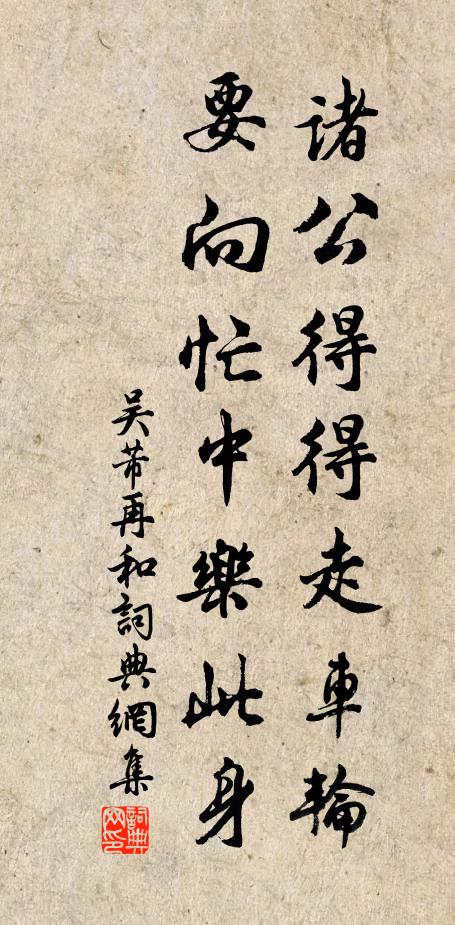 諸公得得走車輪
要向忙中樂此身
吴芾再和詞典網集
詞典网印